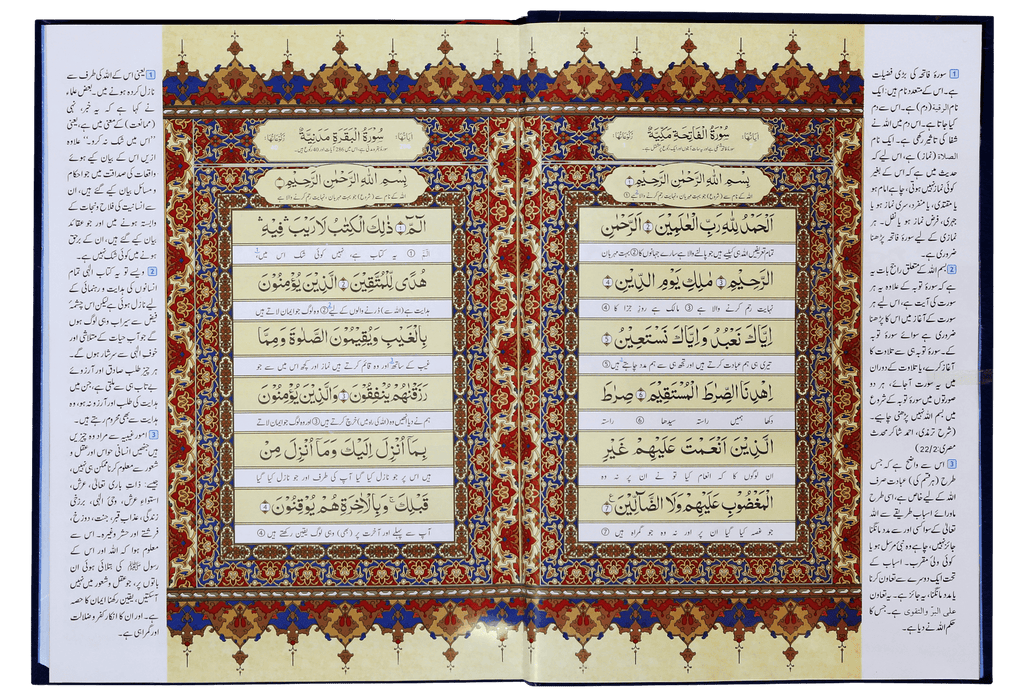 سُوْرَۃُ الْفَاتِحَۃِ مَکِّیَّۃٌ
بِسْمِ اللّٰهِ الرَّحْمٰنِ الرَّحِیْمِ
اللہ کے نام سے (شروع) جو بہت مہربان، نہایت رحم کرنے والا ہے
اَلْحَمْدُ لِلّٰهِ رَبِّ الْعٰلَمِیْنَ ۲ الرَّحْمٰنِ
تمام تعریفیں اللہ ہی کیلیے ہیں جو پالنے والا ہے سارے جہانوں کا ② بہت مہربان
الرَّحِیْمِ ۳ مٰلِكِ یَوْمِ الدِّیْنِ ۴
نہایت رحم کرنے والا ہے ③ مالک ہے روز جزا کا ④
اِیَّاكَ نَعْبُدُ وَاِیَّاكَ نَسْتَعِیْنُ ۵
تیری ہی ہم عبادت کرتے ہیں اور تجھ ہی سے ہم مدد چاہتے ہیں ⑤
اِهْدِنَا الصِّرَاطَ الْمُسْتَقِیْمَ ۶ صِرَاطَ
دکھا ہمیں راستہ سیدھا ⑥ راستہ
الَّذِیْنَ اَنْعَمْتَ عَلَیْهِمْ غَیْرِ
ان لوگوں کا کہ انعام کیا تو نے ان پر نہ وہ
الْمَغْضُوْبِ عَلَیْهِمْ وَلَا الضَّآلِّیْنَ ۷
جو غصہ کیا گیا ان پر اور نہ وہ جو گمراہ ہیں ⑦
1 سورۂ فاتحہ کی بڑی فضیلت
ہے۔ اس کے متعدد نام ہیں: ایک
نام الرقیة (دم) ہے۔ اس سے دم
کیا جاتا ہے۔ اس دم میں اللہ نے
شفا کی تاثیر رکھی ہے۔ ایک نام
الصلاة (نماز) ہے، اس لیے کہ
حدیث میں ہے کہ اس کے بغیر
کوئی نماز نہیں ہوتی، چاہے امام ہو
یا مقتدی، یا منفرد، سری نماز ہو یا
جہری، فرض نماز ہو یا نفل۔ ہر
نمازی کے لیے سورۂ فاتحہ پڑھنا
ضروری ہے۔
2 بسم اللہ کے متعلق راجح بات یہ
ہے کہ سورۂ توبہ کے علاوہ یہ ہر
سورت کی آیت ہے، اس لیے ہر
سورت کے آغاز میں اس کا پڑھنا
ضروری ہے سوائے سورۂ توبہ
کے۔ سورۂ توبہ ہی سے تلاوت کا
آغاز کرے، یا تلاوت کے دوران
میں یہ سورت آ جائے، ہر دو
صورتوں میں سورۂ توبہ کے شروع
میں بسم اللہ نہیں پڑھنی چاہیے۔
(شرح ترمذی، احمد شاکر محدث
مصری: 22/2)
3 اس سے واضح ہے کہ جس
طرح (ہر قسم کی) عبادت صرف
اللہ کے لیے خاص ہے، اسی طرح
ماورائے اسباب طریقے سے اللہ
تعالیٰ کے سوا کسی اور سے مدد مانگنا
جائز نہیں، چاہے وہ نبیٔ مرسل ہو یا
کوئی ولیٔ مقرب۔ اسباب کے
تحت ایک دوسرے سے تعاون کرنا
یا مدد مانگنا، یہ جائز ہے۔ یہ تعاون
علی البر والتقویٰ ہے۔ جس کا
حکم اللہ نے دیا ہے۔
سُوْرَۃُ الْبَقَرَۃِ مَدَنِیَّۃٌ
بِسْمِ اللّٰهِ الرَّحْمٰنِ الرَّحِیْمِ
اللہ کے نام سے (شروع) جو بہت مہربان، نہایت رحم کرنے والا ہے
الٓمّٓ ۱ ذٰلِكَ الْكِتٰبُ لَا رَیْبَ فِیْهِ
الٓمّٓ ① یہ کتاب ہے، نہیں کوئی شک اس میں
هُدًی لِّلْمُتَّقِیْنَ ۲ الَّذِیْنَ یُؤْمِنُوْنَ
ہدایت ہے (اللہ سے) ڈرنے والوں کے لیے ② وہ لوگ جو ایمان لاتے ہیں
بِالْغَیْبِ وَیُقِیْمُوْنَ الصَّلٰوةَ وَمِمَّا
غیب کے ساتھ اور وہ قائم کرتے ہیں نماز اور کچھ اس میں سے جو
رَزَقْنٰهُمْ یُنْفِقُوْنَ ۳ وَالَّذِیْنَ یُؤْمِنُوْنَ
ہم نے دیا انھیں وہ (اللہ کی راہ میں) خرچ کرتے ہیں ③ اور وہ لوگ جو ایمان لاتے
بِمَاۤ اُنْزِلَ اِلَیْكَ وَمَاۤ اُنْزِلَ مِنْ
ہیں اس پر جو نازل کیا گیا آپ کی طرف اور جو نازل کیا گیا
قَبْلِكَ وَبِالْاٰخِرَةِ هُمْ یُوْقِنُوْنَ ۴
آپ سے پہلے اور آخرت پر (بھی) وہی لوگ یقین رکھتے ہیں ④
1 یعنی اس کے اللہ کی طرف سے
نازل کردہ ہونے میں۔ بعض علماء
نے کہا ہے کہ یہ خبر، نہی
(ممانعت) کے معنی میں ہے، یعنی
"اس میں شک نہ کرو۔" علاوہ
ازیں اس کے بیان کیے ہوئے
واقعات کی صداقت میں، جو احکام
و مسائل بیان کیے گئے ہیں، ان
سے انسانیت کی فلاح و نجات کے
وابستہ ہونے میں اور جو عقائد
بیان کیے گئے ہیں، ان کے برحق
ہونے میں کوئی شک نہیں ہے۔
2 ویسے تو یہ کتاب الٰہی تمام
انسانوں کی ہدایت و رہنمائی کے
لیے نازل ہوئی ہے لیکن اس چشمۂ
فیض سے سیراب وہی لوگ ہوں
گے جو آب حیات کے متلاشی اور
خوف الٰہی سے سرشار ہوں گے۔
ہر چیز طلب صادق اور آرزوئے
بے تاب ہی سے ملتی ہے، جن میں
ہدایت کی طلب اور آرزو نہ ہو، وہ
ہدایت سے بھی محروم رہتے ہیں۔
3 امور غیبیہ سے مراد وہ چیزیں
ہیں جنھیں انسانی حواس اور عقل و
شعور سے معلوم کرنا ممکن ہی نہیں،
جیسے: ذات باری تعالیٰ، عرش،
استواء عرش، وحی الٰہی، برزخی
زندگی، عذاب قبر، جنت، دوزخ،
فرشتے اور حشر وغیرہ۔ اس سے
معلوم ہوا کہ اللہ اور اس کے
رسول ﷺ کی بتلائی ہوئی ان
باتوں پر، جو عقل و شعور میں نہیں
آ سکتیں، یقین رکھنا ایمان کا حصہ
ہے۔ اور ان کا انکار کفر و ضلالت
اور گمراہی ہے۔